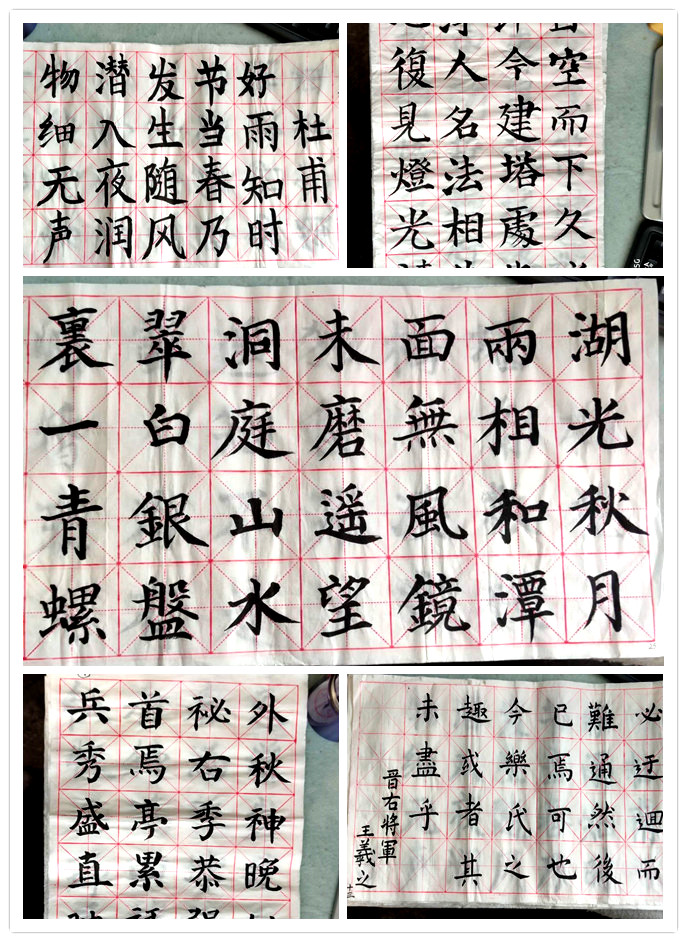 杜甫
好雨知时
节当春乃
发生随风
潜入夜润
物细无声
空而下久
今建塔處
人名法相
復見燈光
湖光秋月
兩相和潭
面無風鏡
未磨遥望
洞庭山水
翠白銀盤
裏一青螺
外秋神晚
祕右季恭
首焉亭累
兵秀盛直
必迂迴而
難通然後
已焉可也
今樂氏之
趣或者其
未盡乎
晉右將軍
王羲之